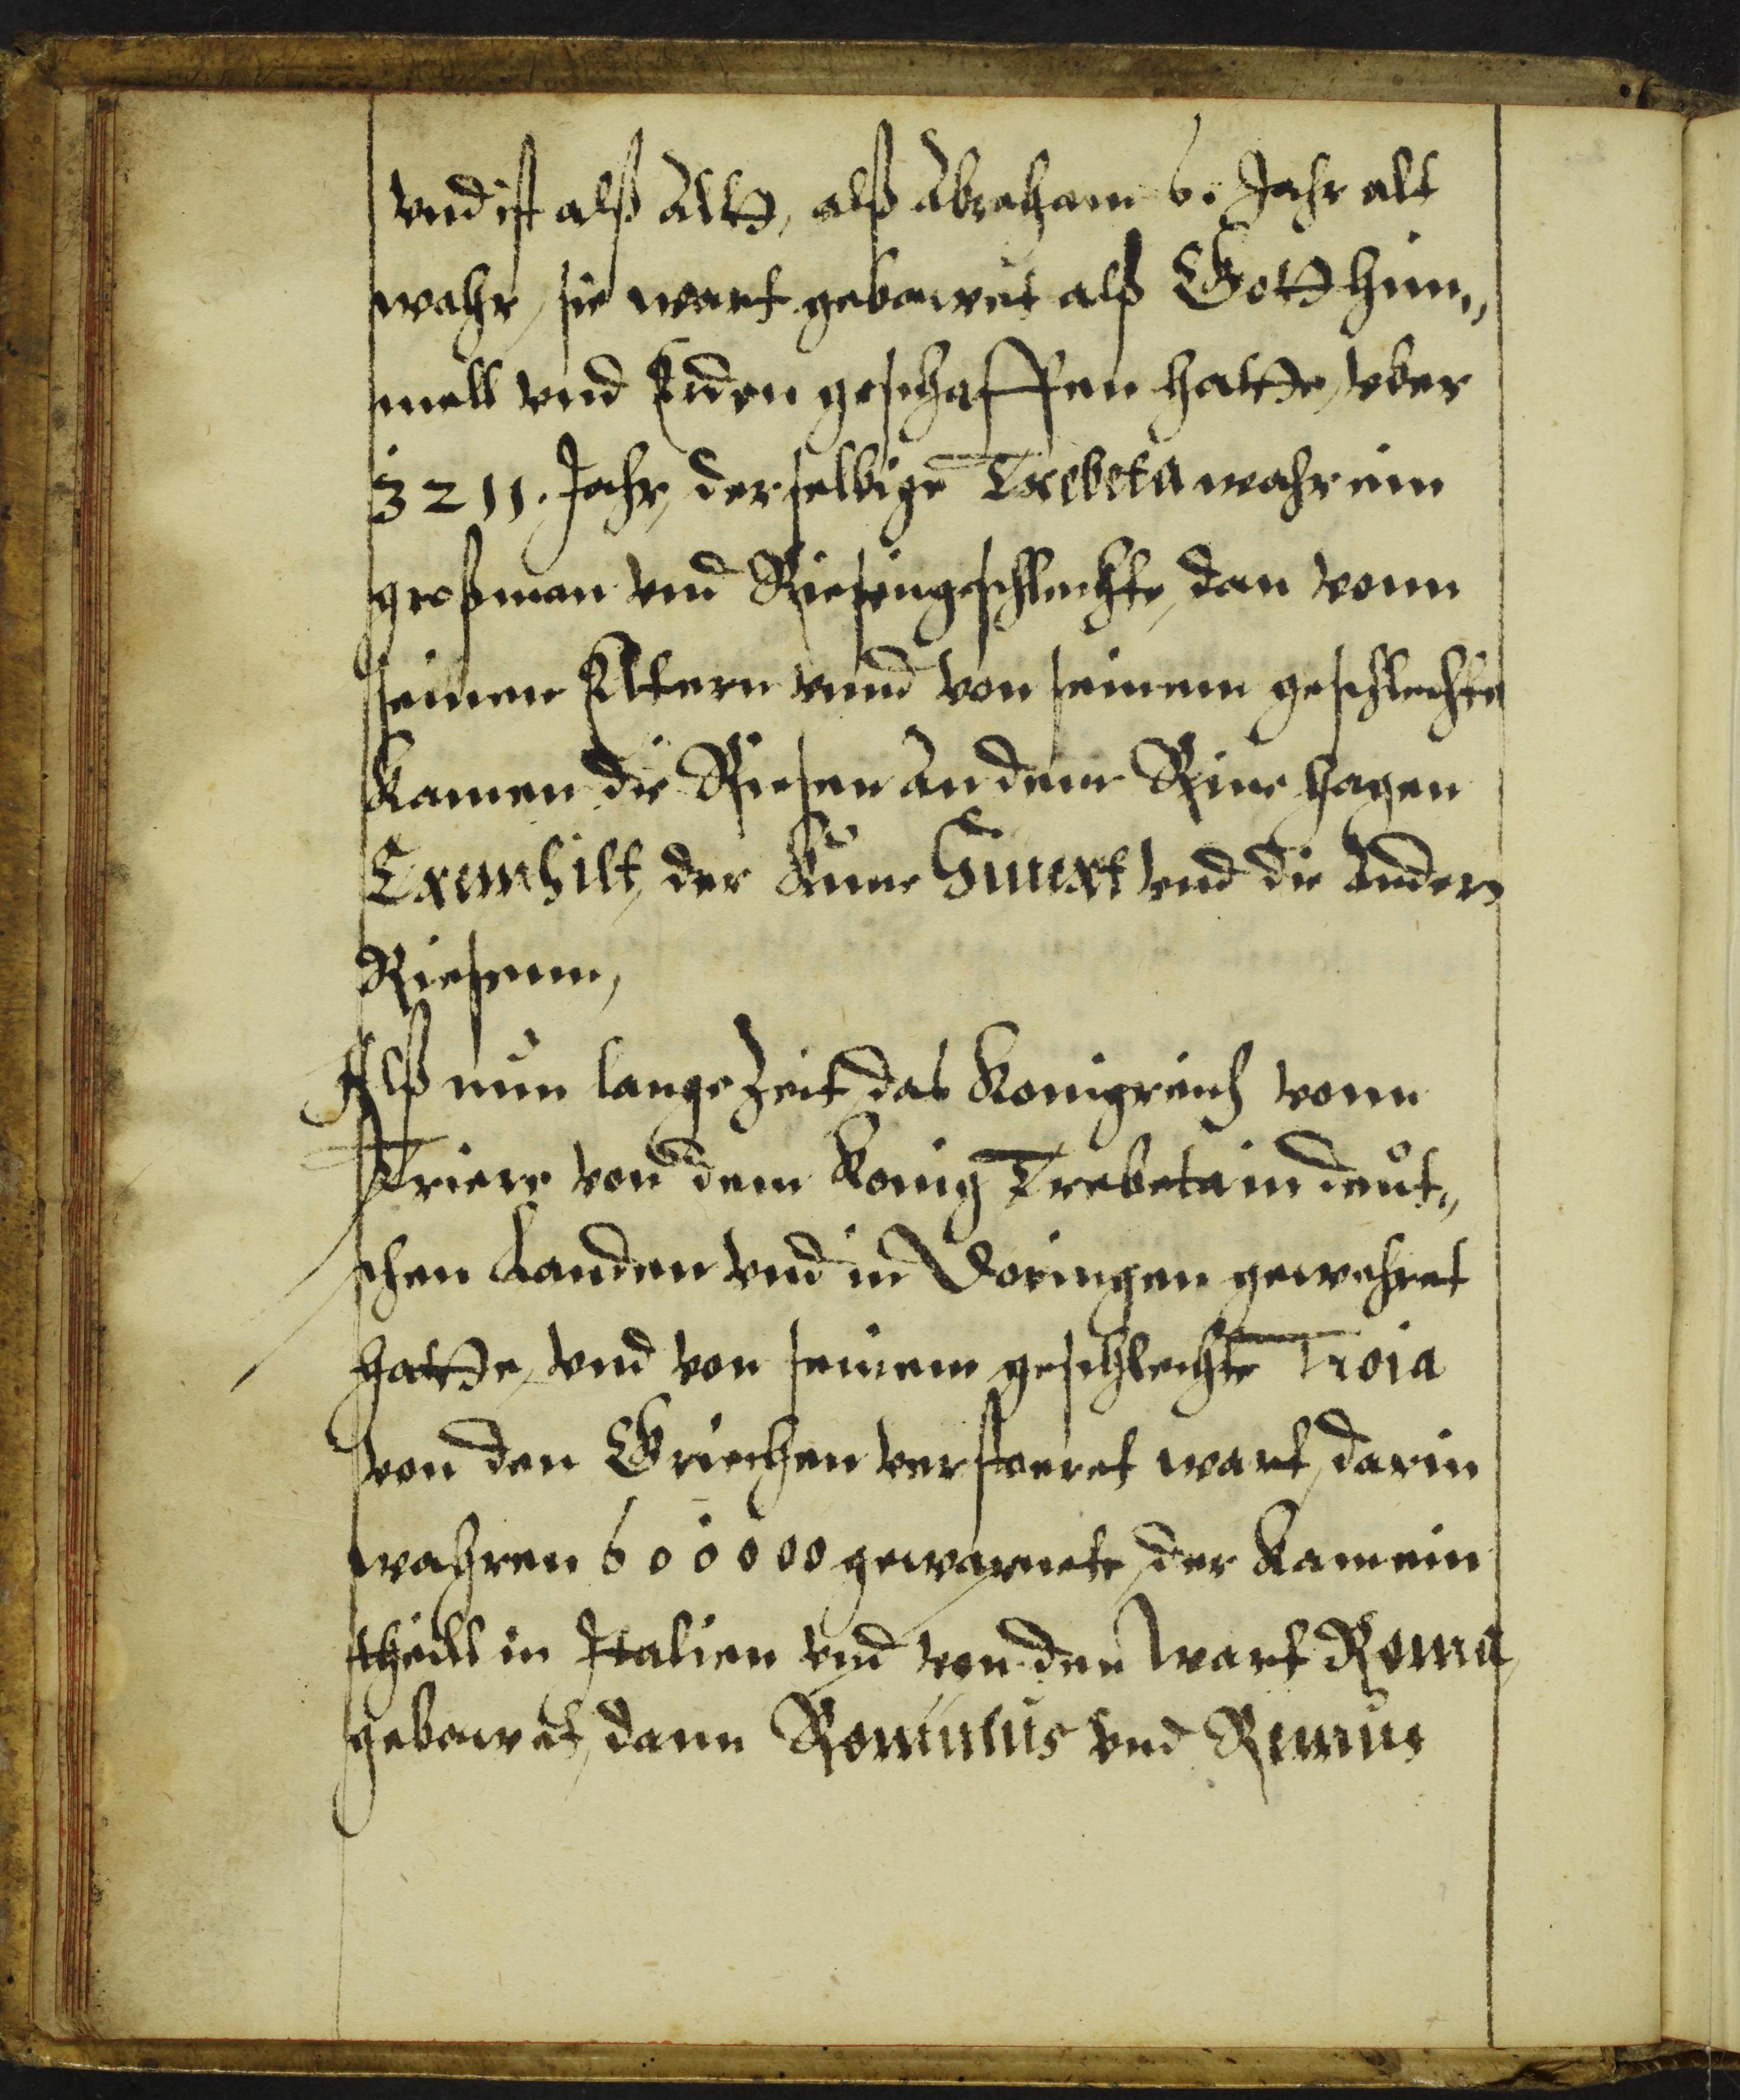 vnd ist alß Altt, alß Abraham 6. Jahr alt
wahr, sie wart gebawet alß Gott him„
mell vnd Erden geschaffen hatte, vber
3211. Jahr, derselbige Trebeta wahr eim
großman vnd Riesengeschlechte, dan vonn
seinen Eltern vnnd von seinem geschlechte
kamen die Riesen an dem Rine hagen
Cremhilt, der kune Sinert vnd die Andern
Riesenn,
Alß nun lange Zeit, das Konigreich vonn
Trierr von dem Konig Trebeta in deut„
schen Landen vnd in Doringen gewehret
hatte, vnd von seinem geschlechte Troia
von den Griechen verstoeret wart, darin
wahren 600000 gewapnete, der kam ein
theill in Italien vnd von den wart Roma,
gebawet, dann Romulus vnd Remus